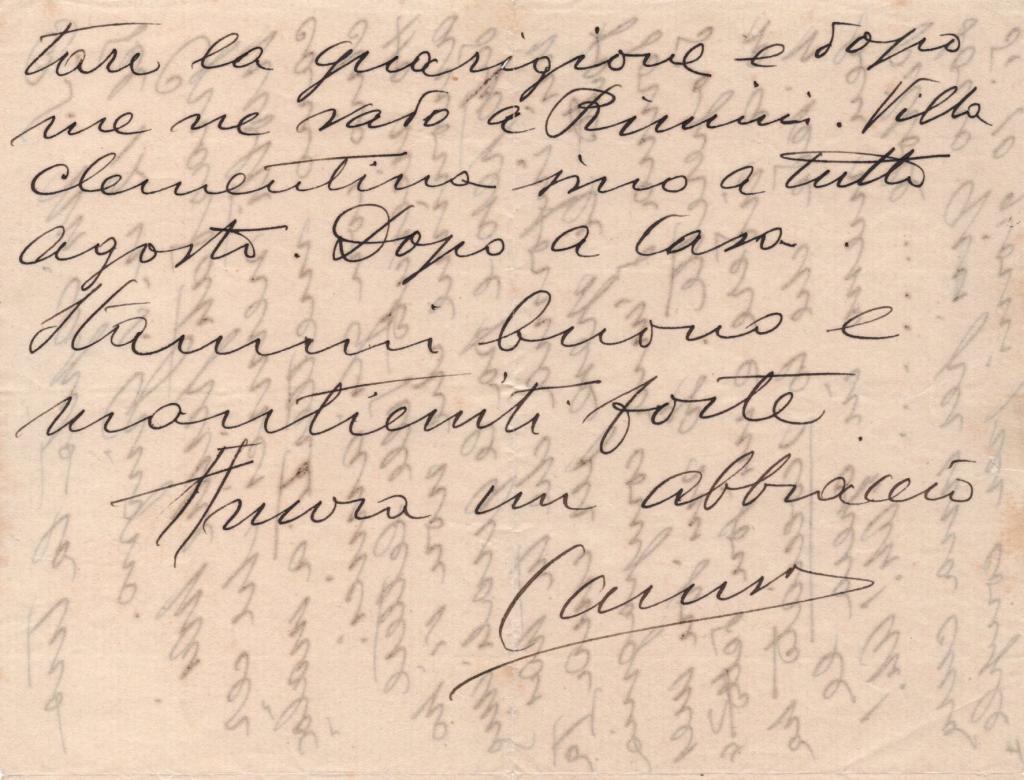 tare la guarigione e dopo
me ne vado a Rimini. Villa
Clementina sino a tutto
agosto. Dopo a casa.
Stammi buono e
mantieniti forte.
Ancora un abbraccio
Caruso